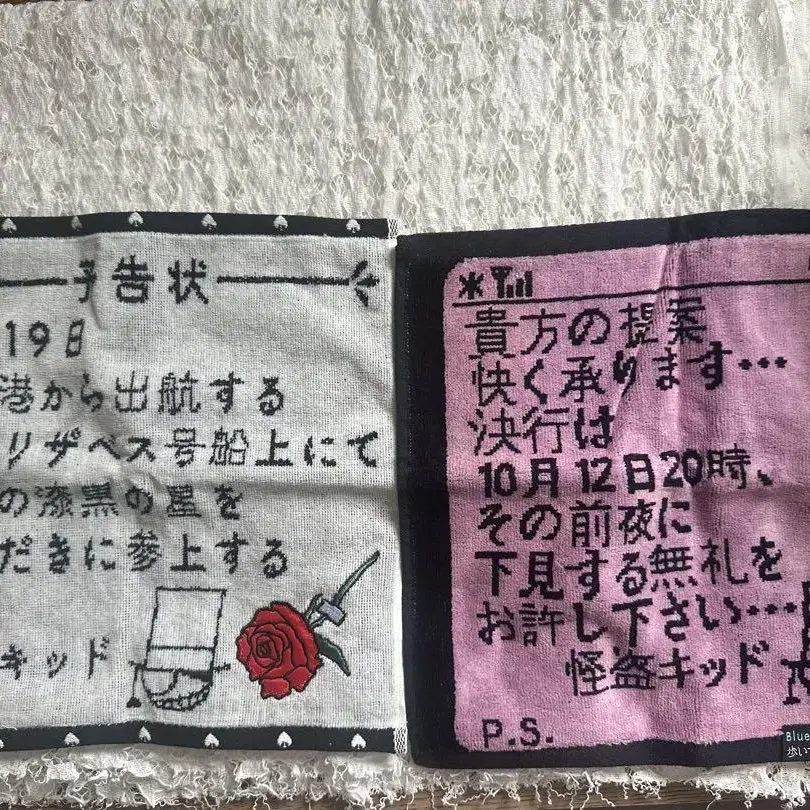 予告状
19日
港から出航する
リザベス号船上にて
の漆黒の星を
だきに参上する
キッド
貴方の提案
快く承ります…
決行は
10月12日20時、
その前夜に
下見する無礼を
お許し下さい…
怪盗キッド
P.S.
Blue
歩い